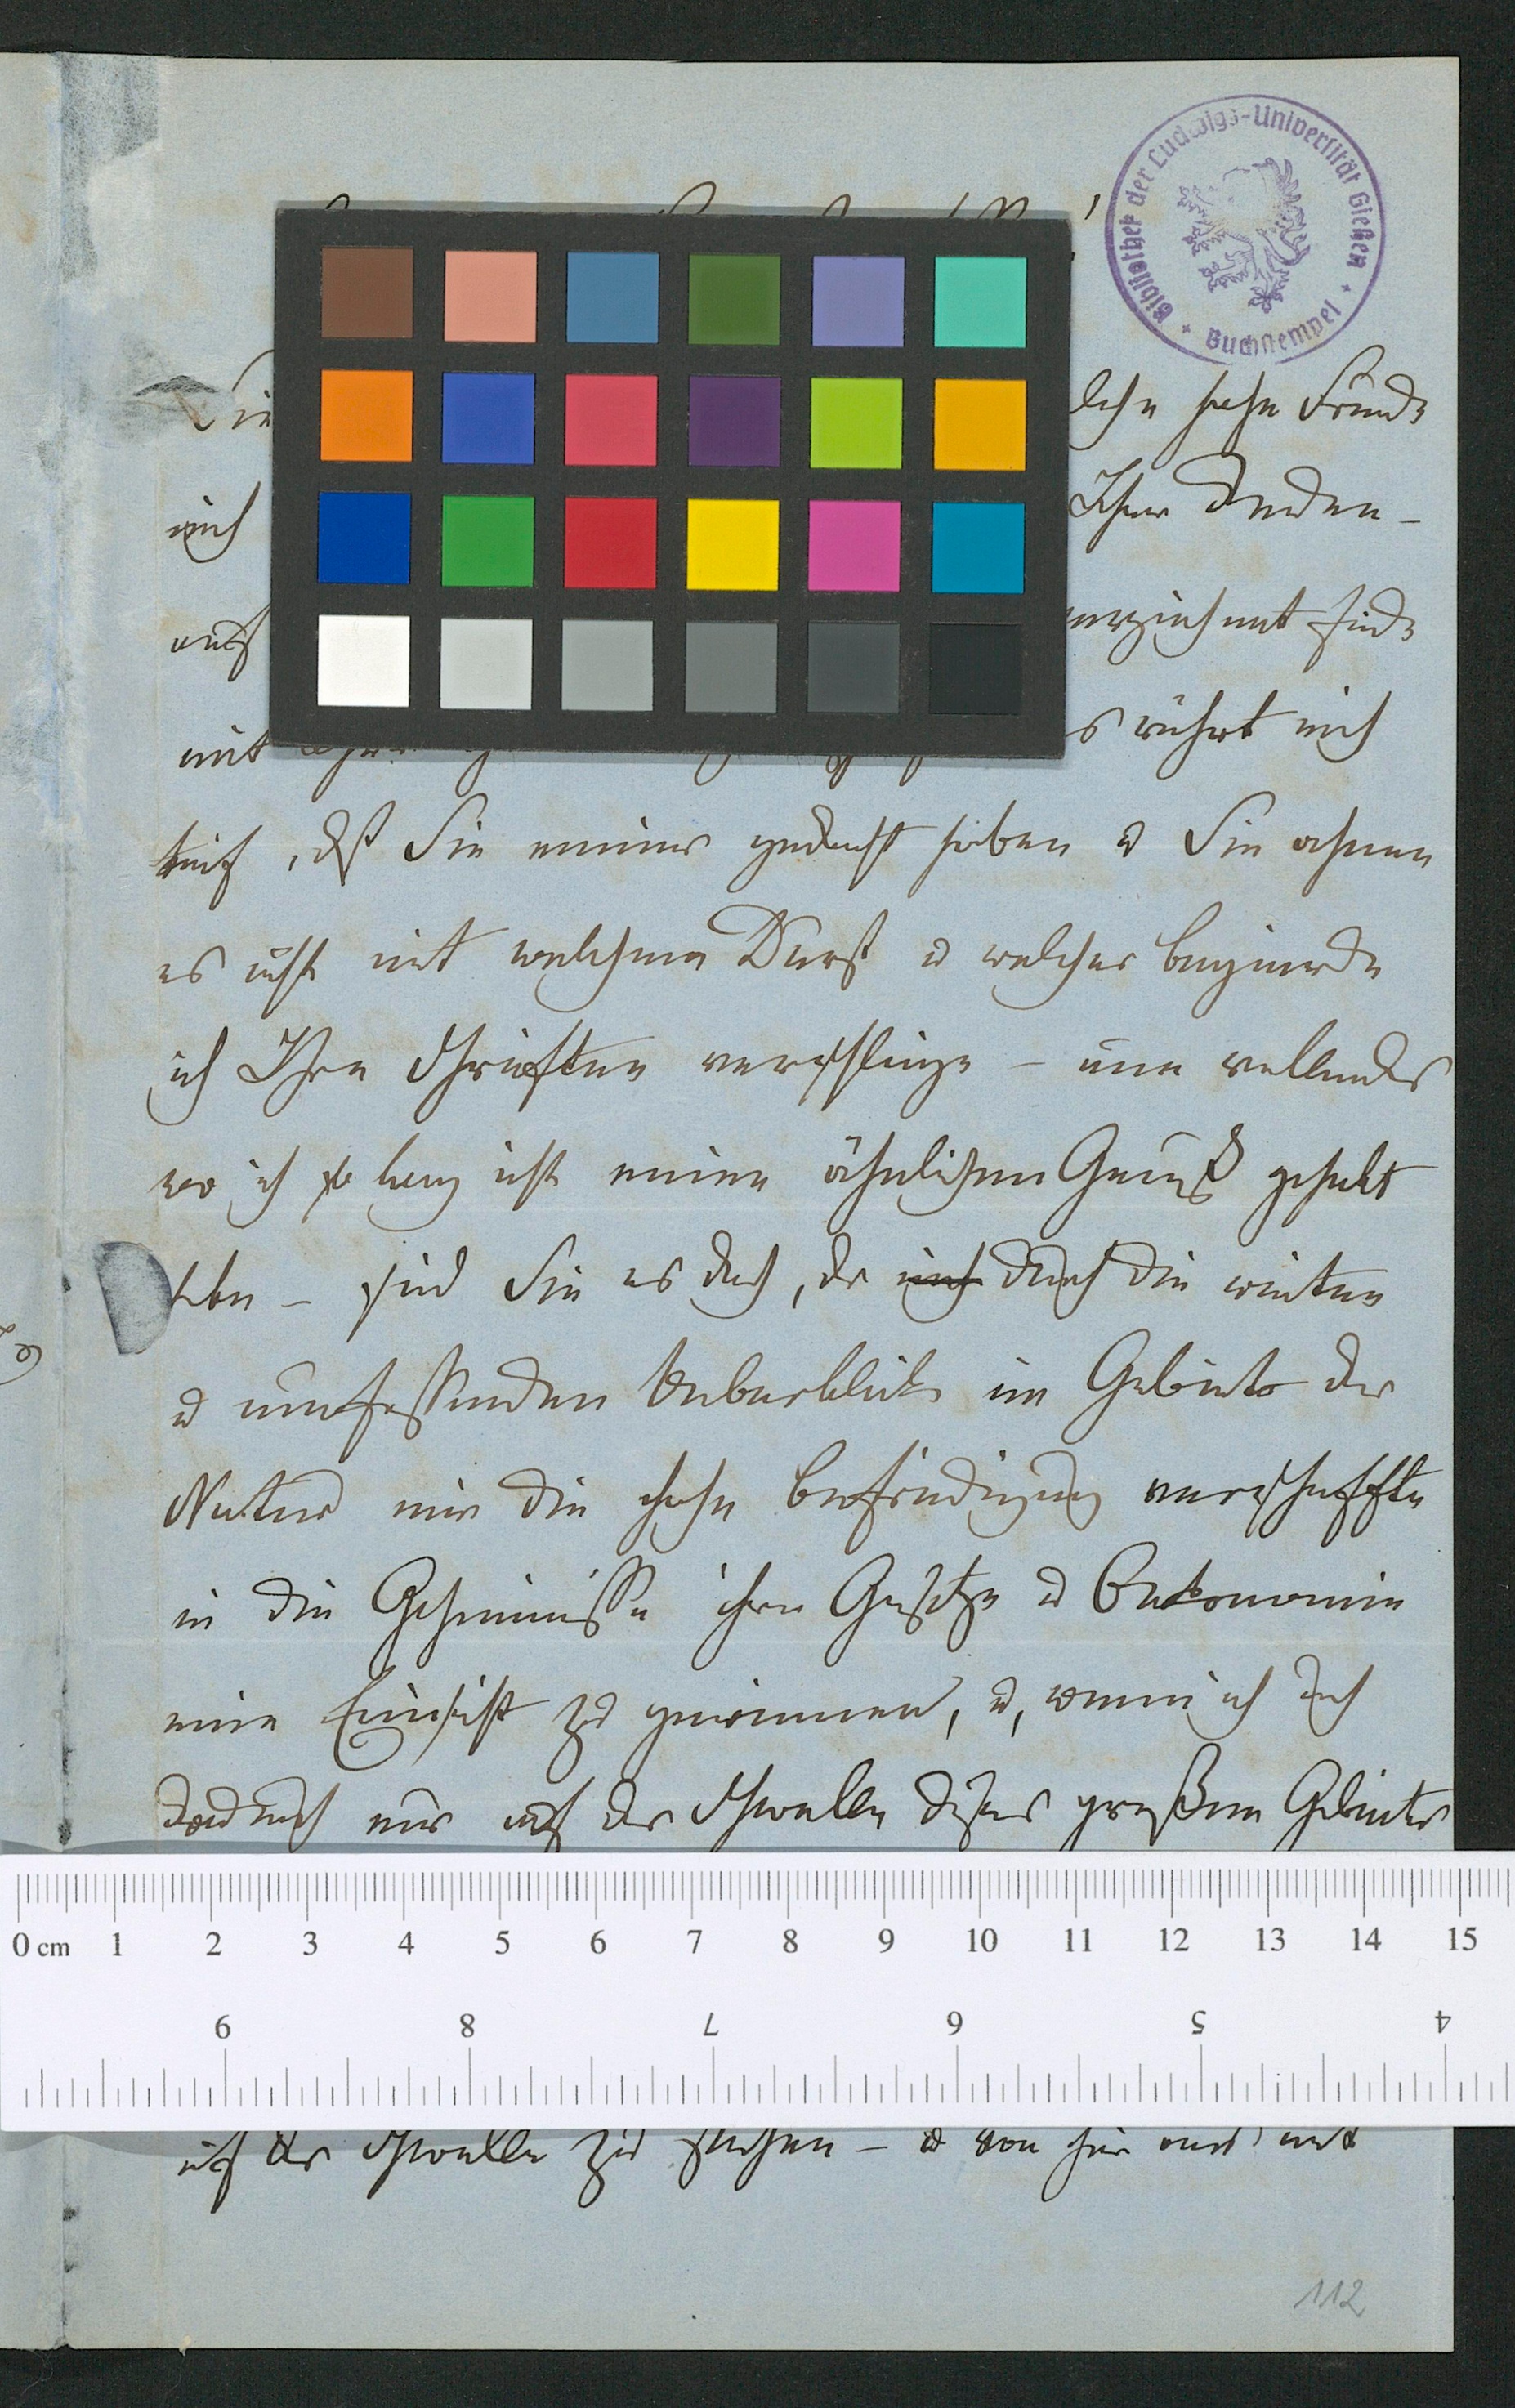 Bibliothek der Ludwigs-Universität Gießen
Buchstempel
Sie lche hohe Freude
mich Ihrer Andenken
auf verzeichnet finde
mit s rührt mich
tief, dß Sie meiner gedacht haben u Sie ahnen
es nicht mit welchem Durst u welcher Begierde
ich Ihre Schriften verschlinge – nun vollends
wo ich so lang nicht einen ähnlichen Genuß gehabt
habe – sind Sie es doch, der mich durch die weiten
u umfassenden Ueberblicke im Gebiete der
Natur mir die hohe Befriedigung verschaffte
in die Geheimnisse ihrer Gesetze u Oekonomie
eine Einsicht zu gewinnen, u, wenn ich doch
dadurch nur auf der Schwelle dieses großen Gebietes
0 cm 1 2 3 4 5 6 7 8 9 10 11 12 13 14 15
9 8 7 6 5 4
auf der Schwelle zu stehen – u von hier aus mit
112